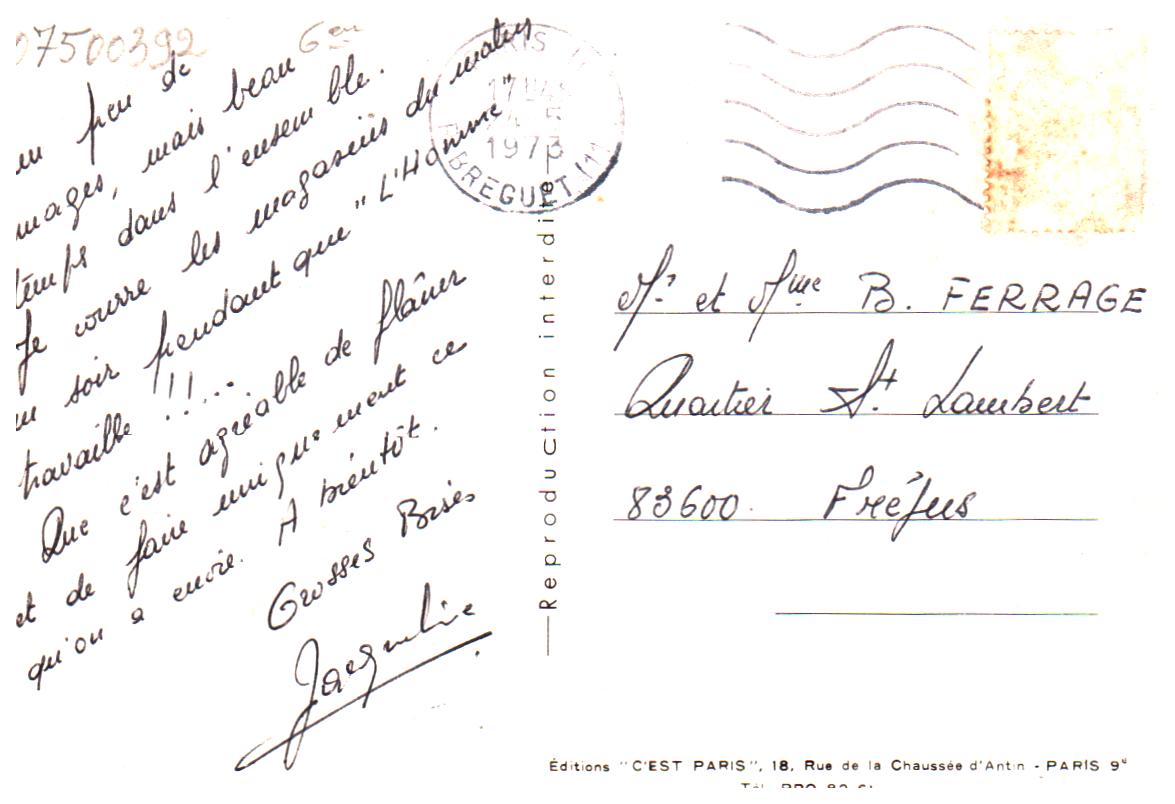 07500392 6em
un peu de
nuages, mais beau
temps dans l'ensemble.
Je courre les magasins du matin
au soir pendant que "L'Homme"
travaille !!!...
Que c'est agréable de flâner
et de faire uniquement ce
qu'on a envie. A bientôt.
Grosses Bises
Jacqueline
PARIS
17H45
1973
BREGUET (11)
Reproduction interdite
Mr et Mme B. FERRAGE
Quartier St. Lambert
83600 Fréjus
Éditions "C'EST PARIS", 18, Rue de la Chaussée d'Antin - PARIS 9e
Tél.